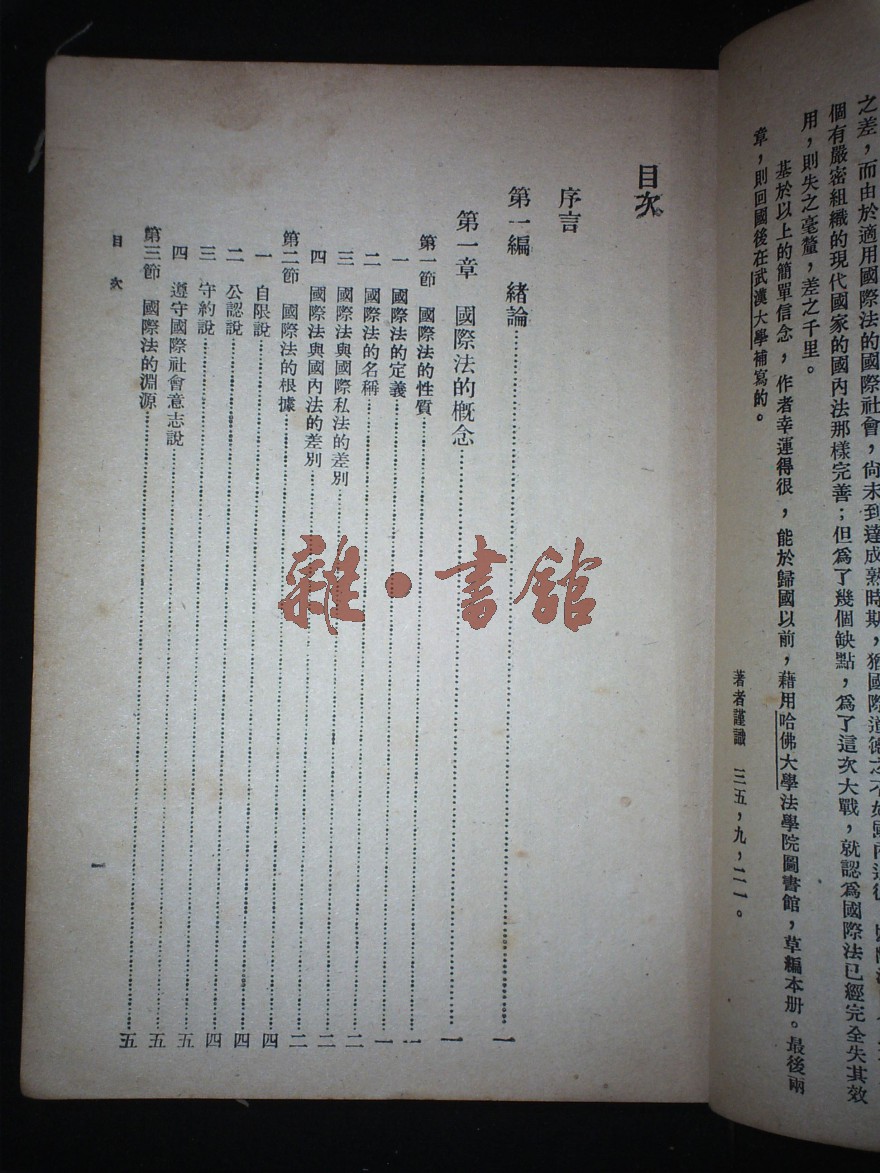 之差，而由於適用國際法的國際社會，尙未到達成熟時期，猶國際道德之不如國內道德
個有嚴密組織的現代國家的國內法那樣完善；但爲了幾個缺點，爲了這次大戰，就認爲國際法已經完全失其效
用，則失之毫釐，差之千里。
基於以上的簡單信念，作者幸運得很，能於歸國以前，藉用哈佛大學法學院圖書館，草編本册。最後兩
章，則回國後在武漢大學補寫的。
著者謹識　三五，九，二一。
目次
序言
第一編　緒論……一
第一章　國際法的概念……一
第一節　國際法的性質……一
一　國際法的定義……一
二　國際法的名稱……二
三　國際法與國際私法的差別……二
四　國際法與國內法的差別……二
第二節　國際法的根據……四
一　自限說……四
二　公認說……四
三　守約說……五
四　遵守國際社會意志說……五
第三節　國際法的淵源……五
目次
一
雜・書館